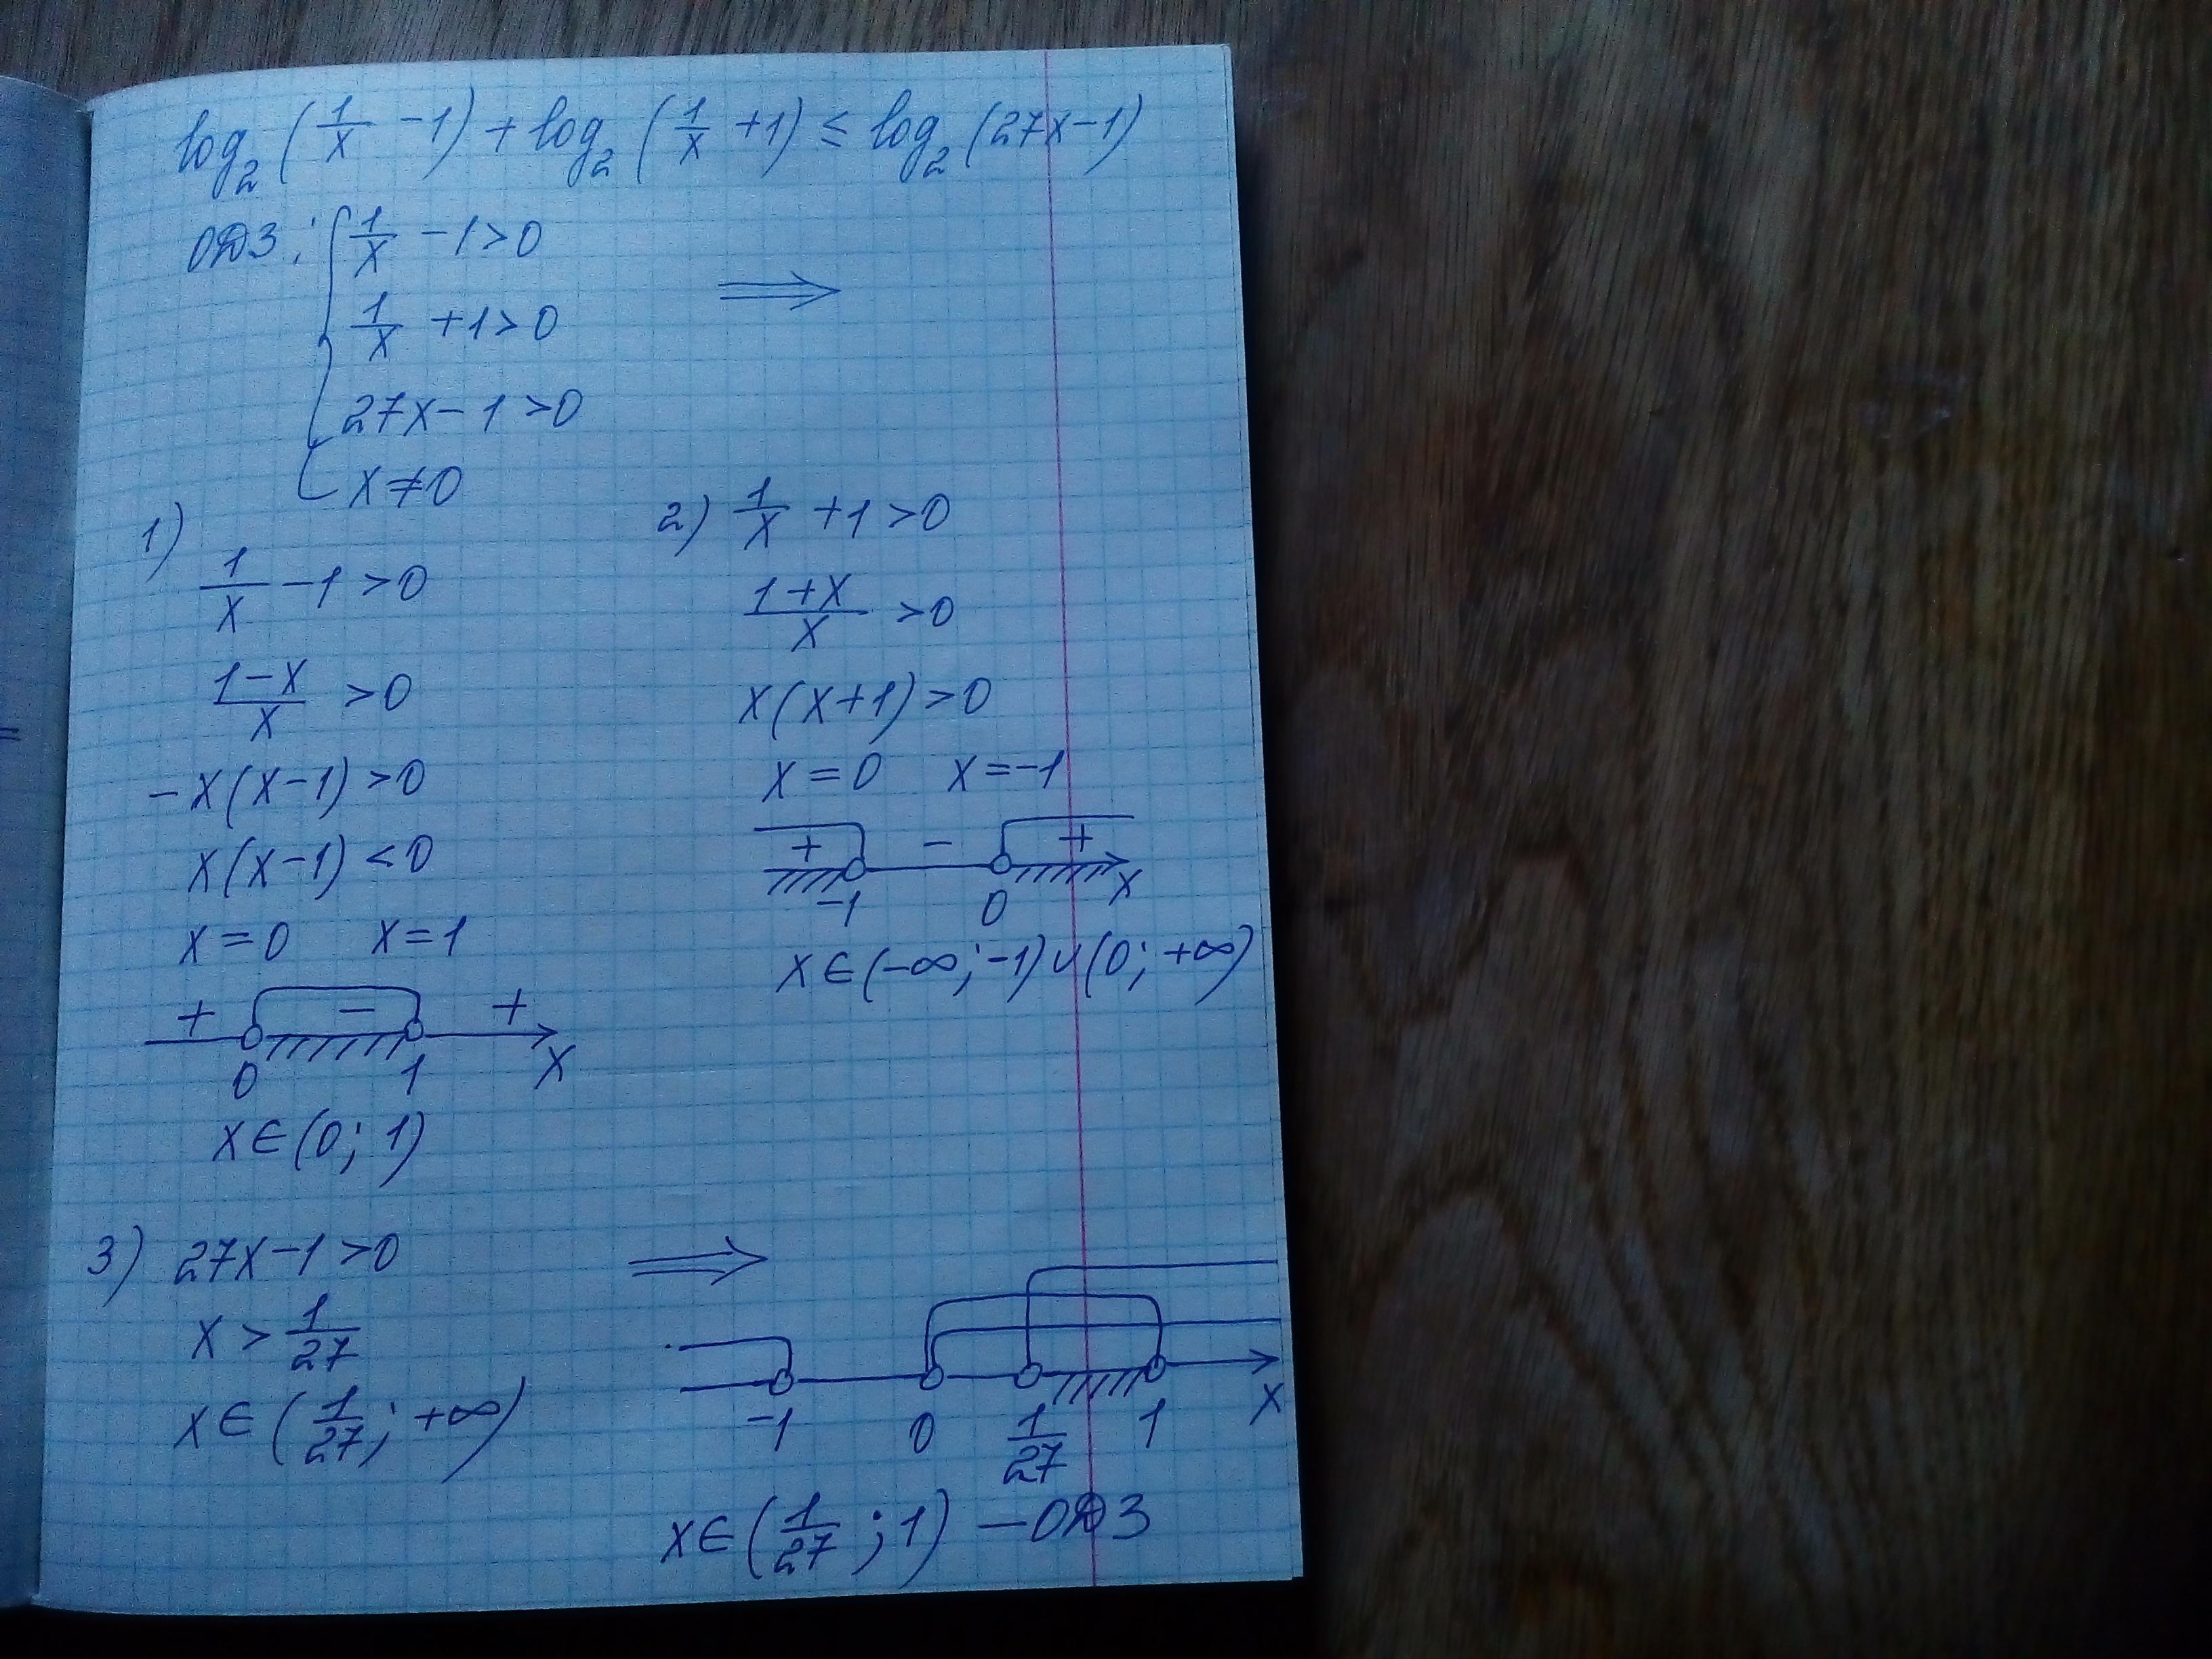 log₂(1/x - 1) + log₂(1/x + 1) ≤ log₂(27x-1)
ОДЗ: { 1/x - 1 > 0
1/x + 1 > 0 ⟹
27x - 1 > 0
x ≠ 0
1)
1/x - 1 > 0
(1-x)/x > 0
-x(x-1) > 0
x(x-1) < 0
x=0 x=1
+ - +
0 1 x
x∈(0; 1)
2) 1/x + 1 > 0
(1+x)/x > 0
x(x+1) > 0
x=0 x=-1
+ - +
-1 0 x
x∈(-∞; -1)∪(0; +∞)
3) 27x-1 > 0 ⟹
x > 1/27
x∈(1/27; +∞)
-1 0 1/27 1 x
x∈(1/27; 1) - ОДЗ
=